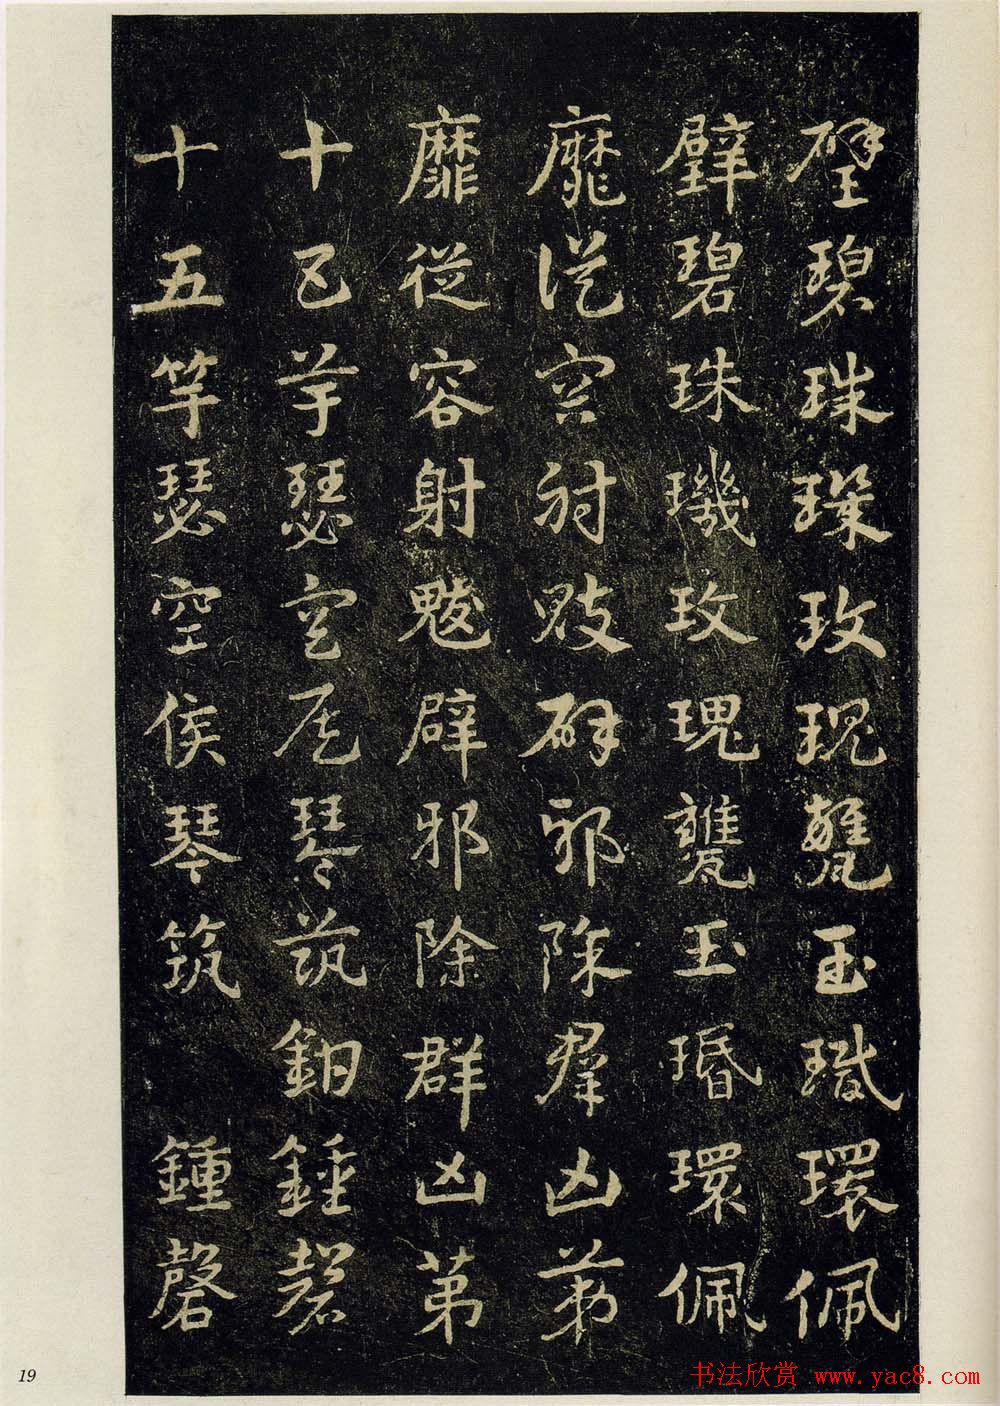 璧碧珠璣玫瑰甕玉環佩
璧碧珠璣玫瑰甕玉環佩
靡從容射魃辟邪除群凶第
靡從容射魃辟邪除群凶第
十五竽瑟空侯琴筑鍾磬
十五竽瑟空侯琴筑鍾磬
19
书法欣赏 www.yac8.com